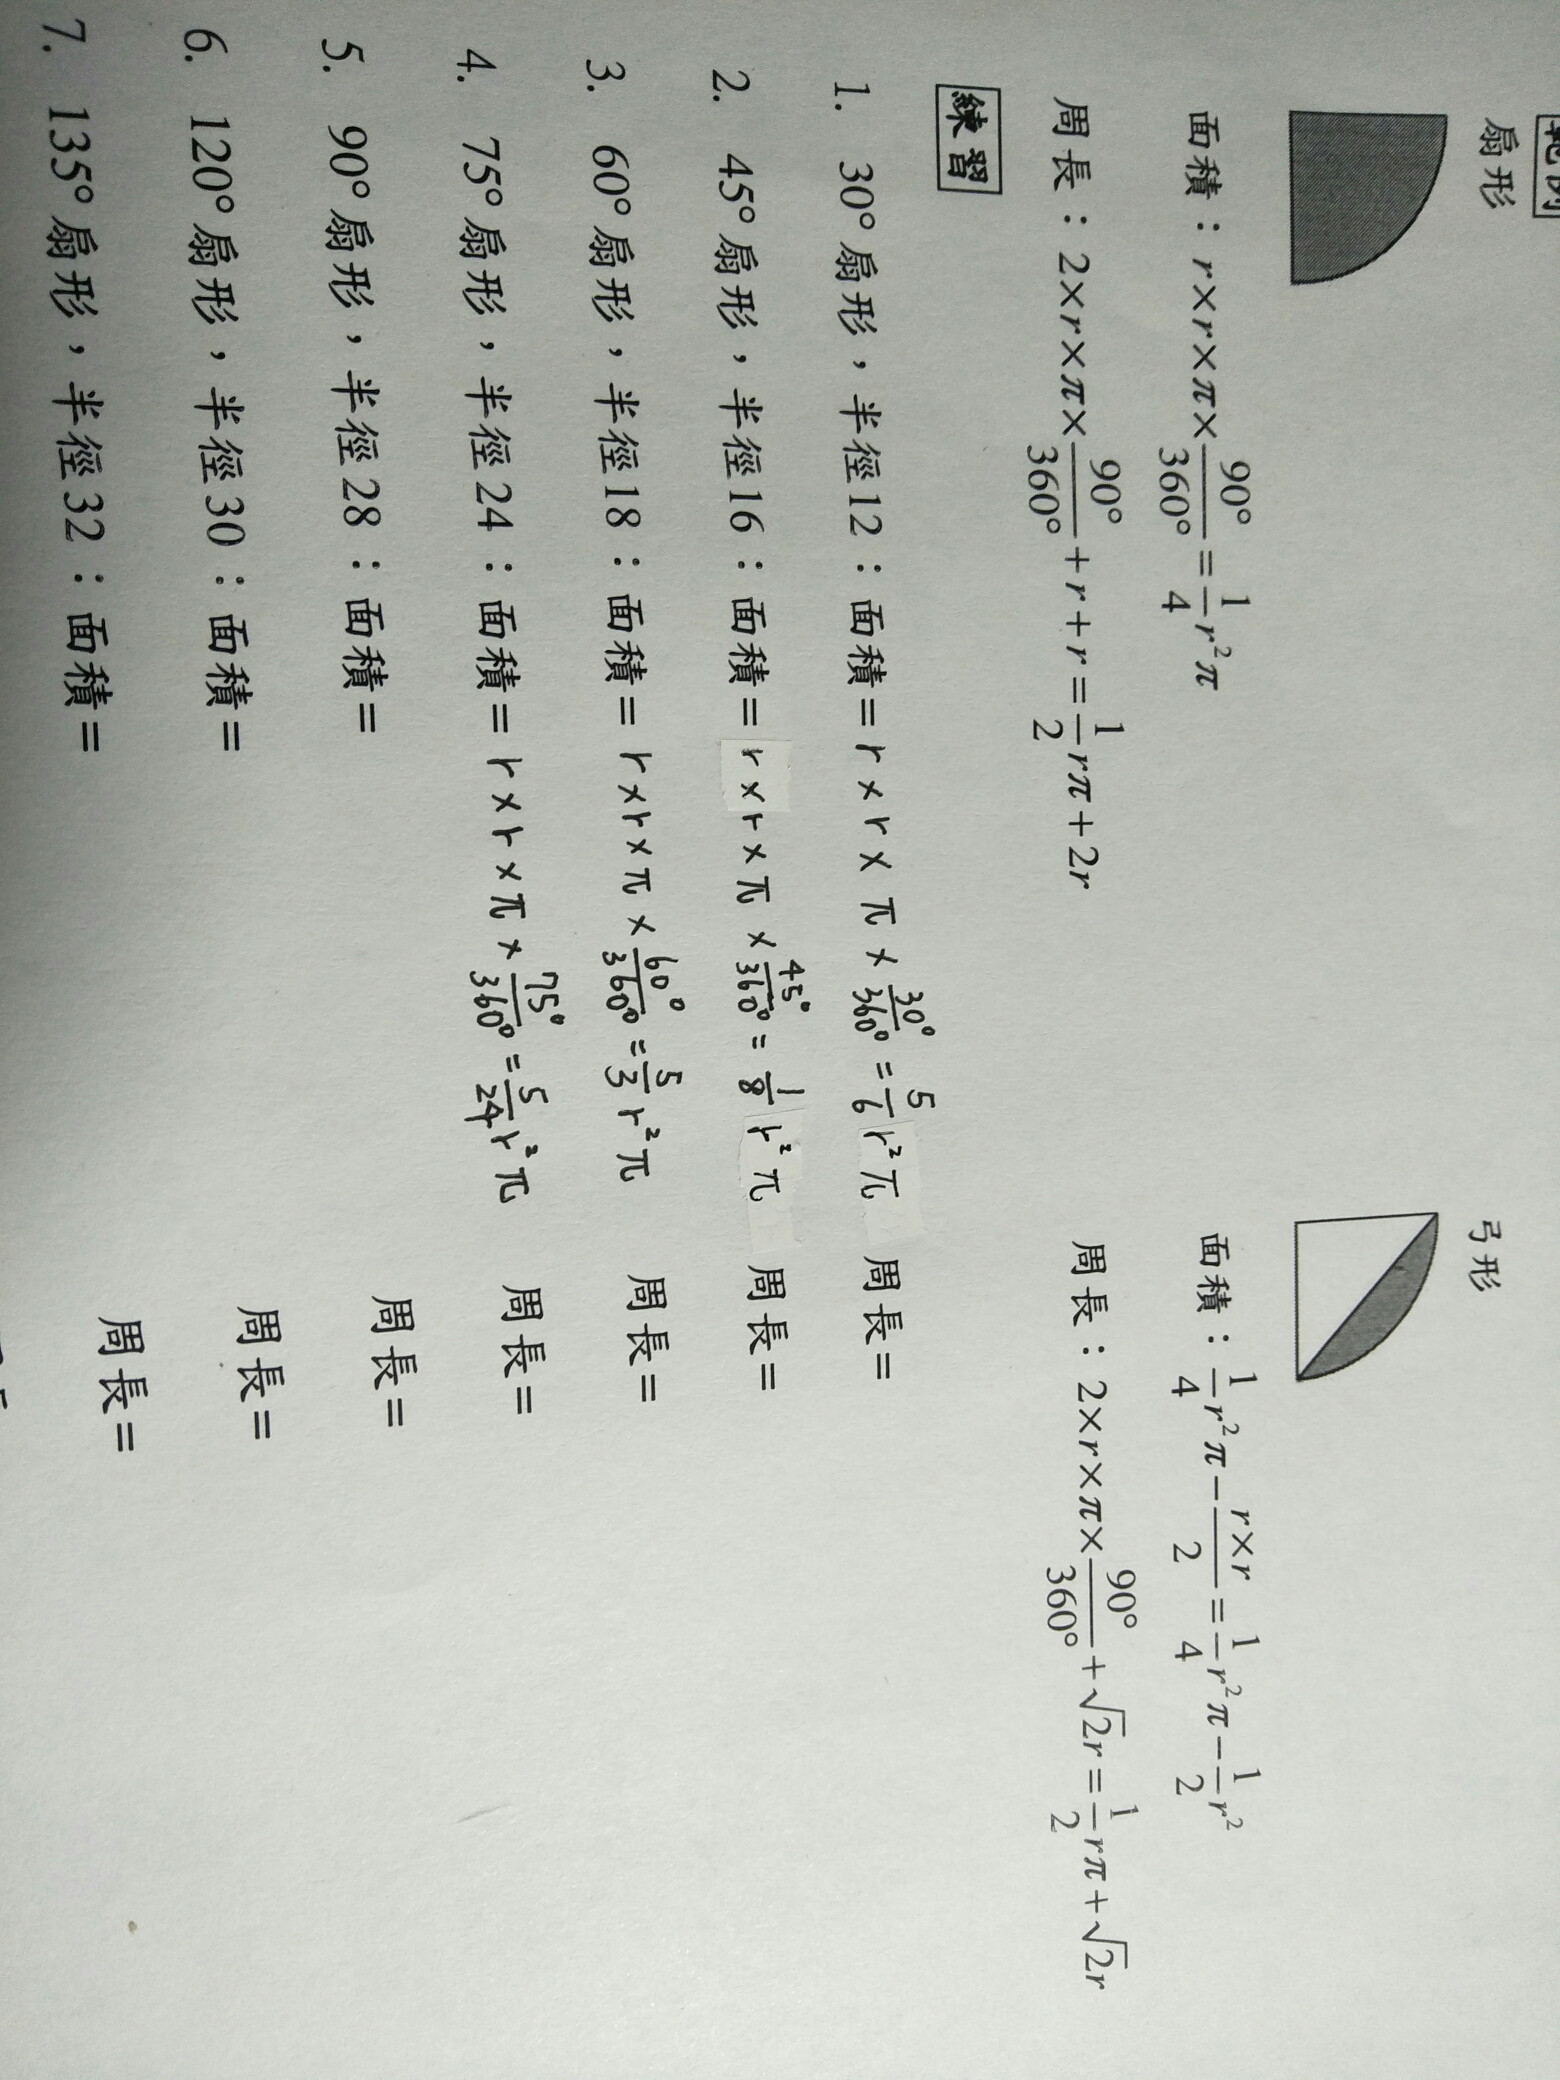 扇形
面積：r×r×π×90°/360°=1/4r²π
周長：2×r×π×90°/360°+r+r=1/2rπ+2r
弓形
面積：1/4r²π−r×r/2=1/4r²π−1/2r²
周長：2×r×π×90°/360°+√2r=1/2rπ+√2r
練習
1. 30°扇形，半徑12：面積=r×r×π×30°/360°=5/6r²π 周長=
2. 45°扇形，半徑16：面積=r×r×π×45°/360°=1/8r²π 周長=
3. 60°扇形，半徑18：面積=r×r×π×60°/360°=5/3r²π 周長=
4. 75°扇形，半徑24：面積=r×r×π×75°/360°=5/24r²π 周長=
5. 90°扇形，半徑28：面積= 周長=
6. 120°扇形，半徑30：面積= 周長=
7. 135°扇形，半徑32：面積= 周長=